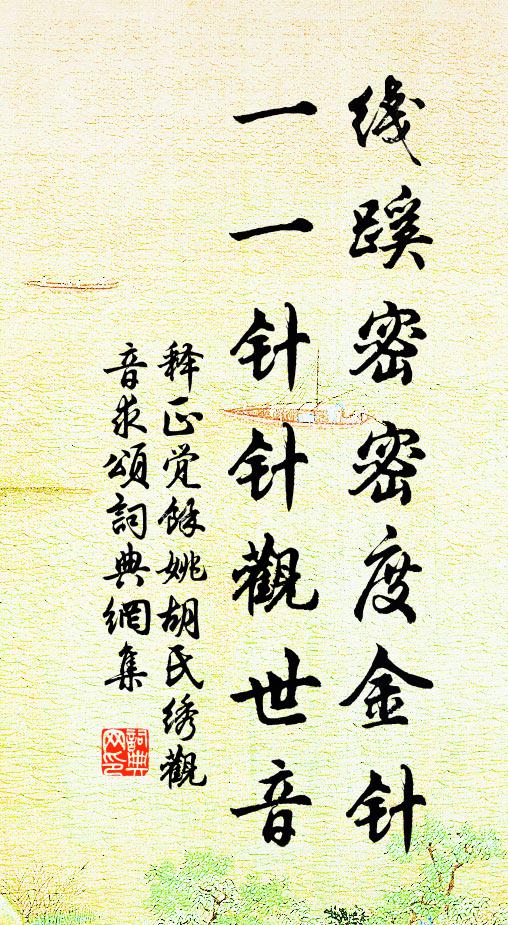 线蹊密密度金针
一一针针觀世音
释正觉餘姚胡氏绣觀
音求頌詞典網集
詞典网印